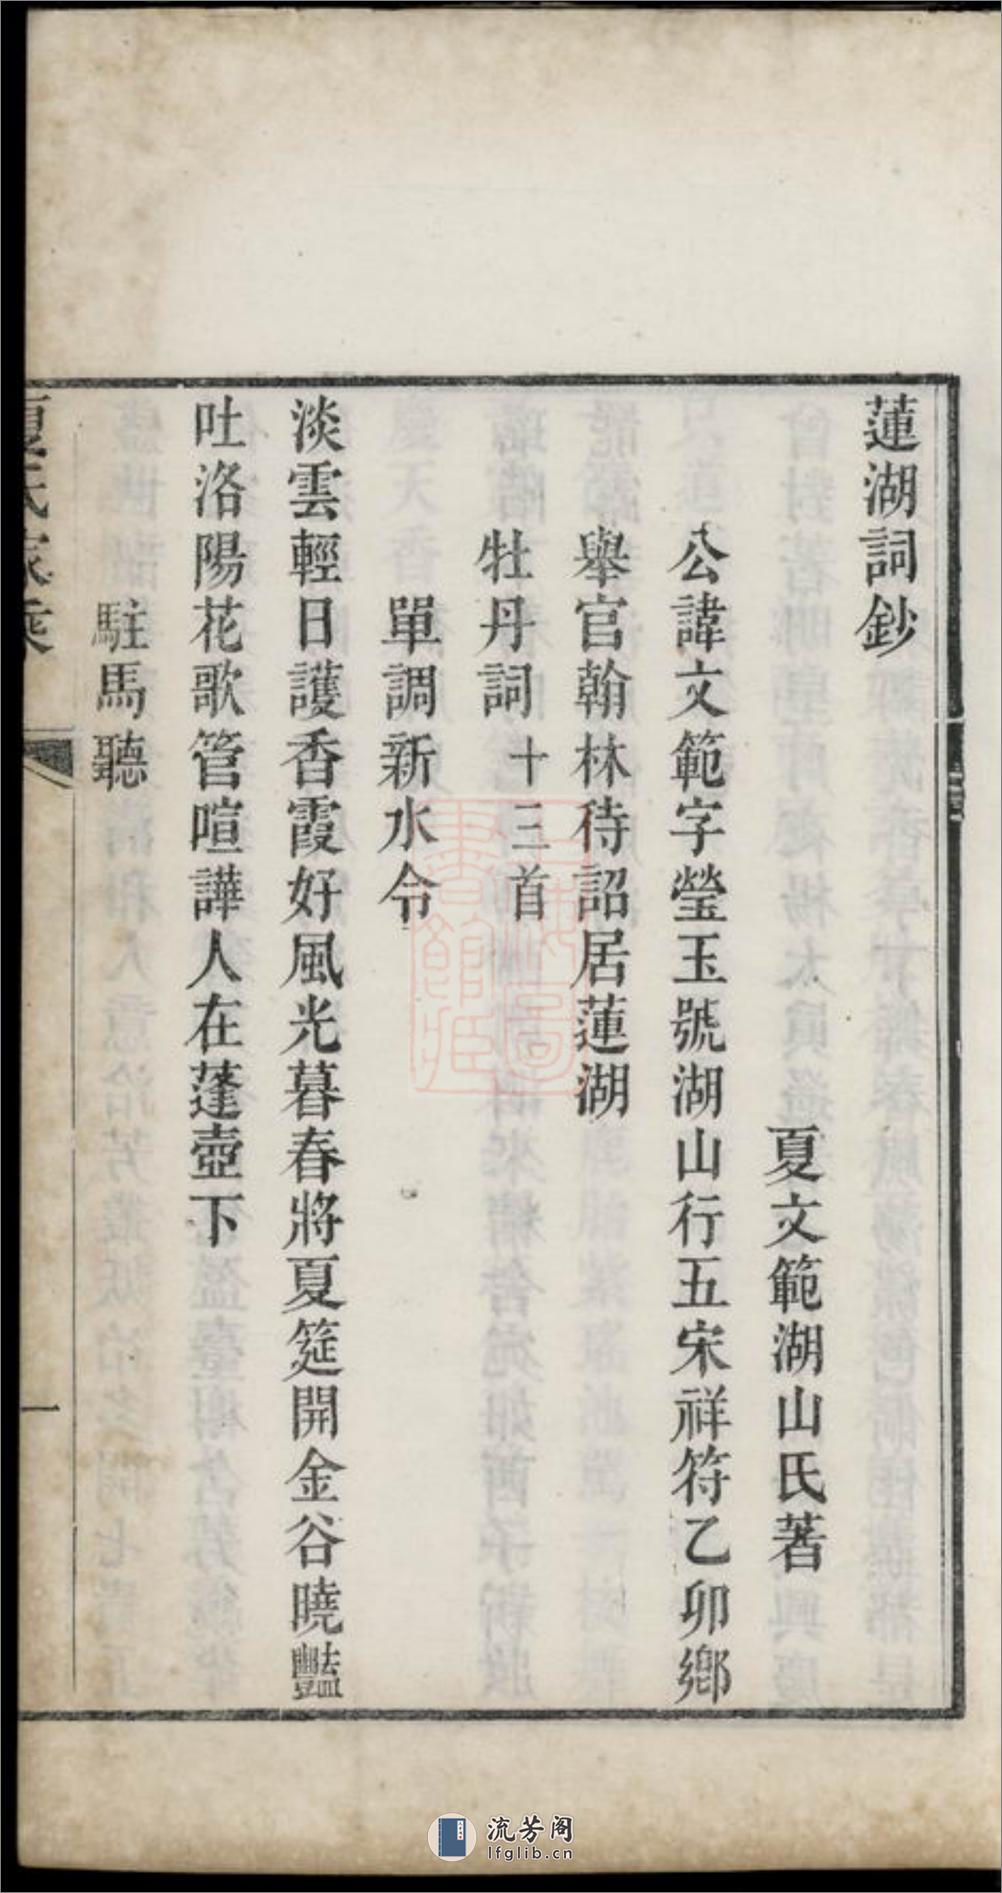 蓮湖詞鈔
夏文範湖山氏著
公諱文範字瑩玉號湖山行五宋祥符乙卯鄉
舉官翰林待詔居蓮湖
牡丹詞十三首
單調新水令
淡雲輕日護香霞好風光暮春將夏筵開金谷曉豔
吐洛陽花歌管喧譁人在蓬壺下
駐馬聽
夏氏家乘
一
流芳阁
lfglib.cn